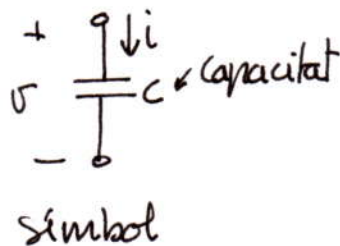 + i
v C capacitat
-
símbol